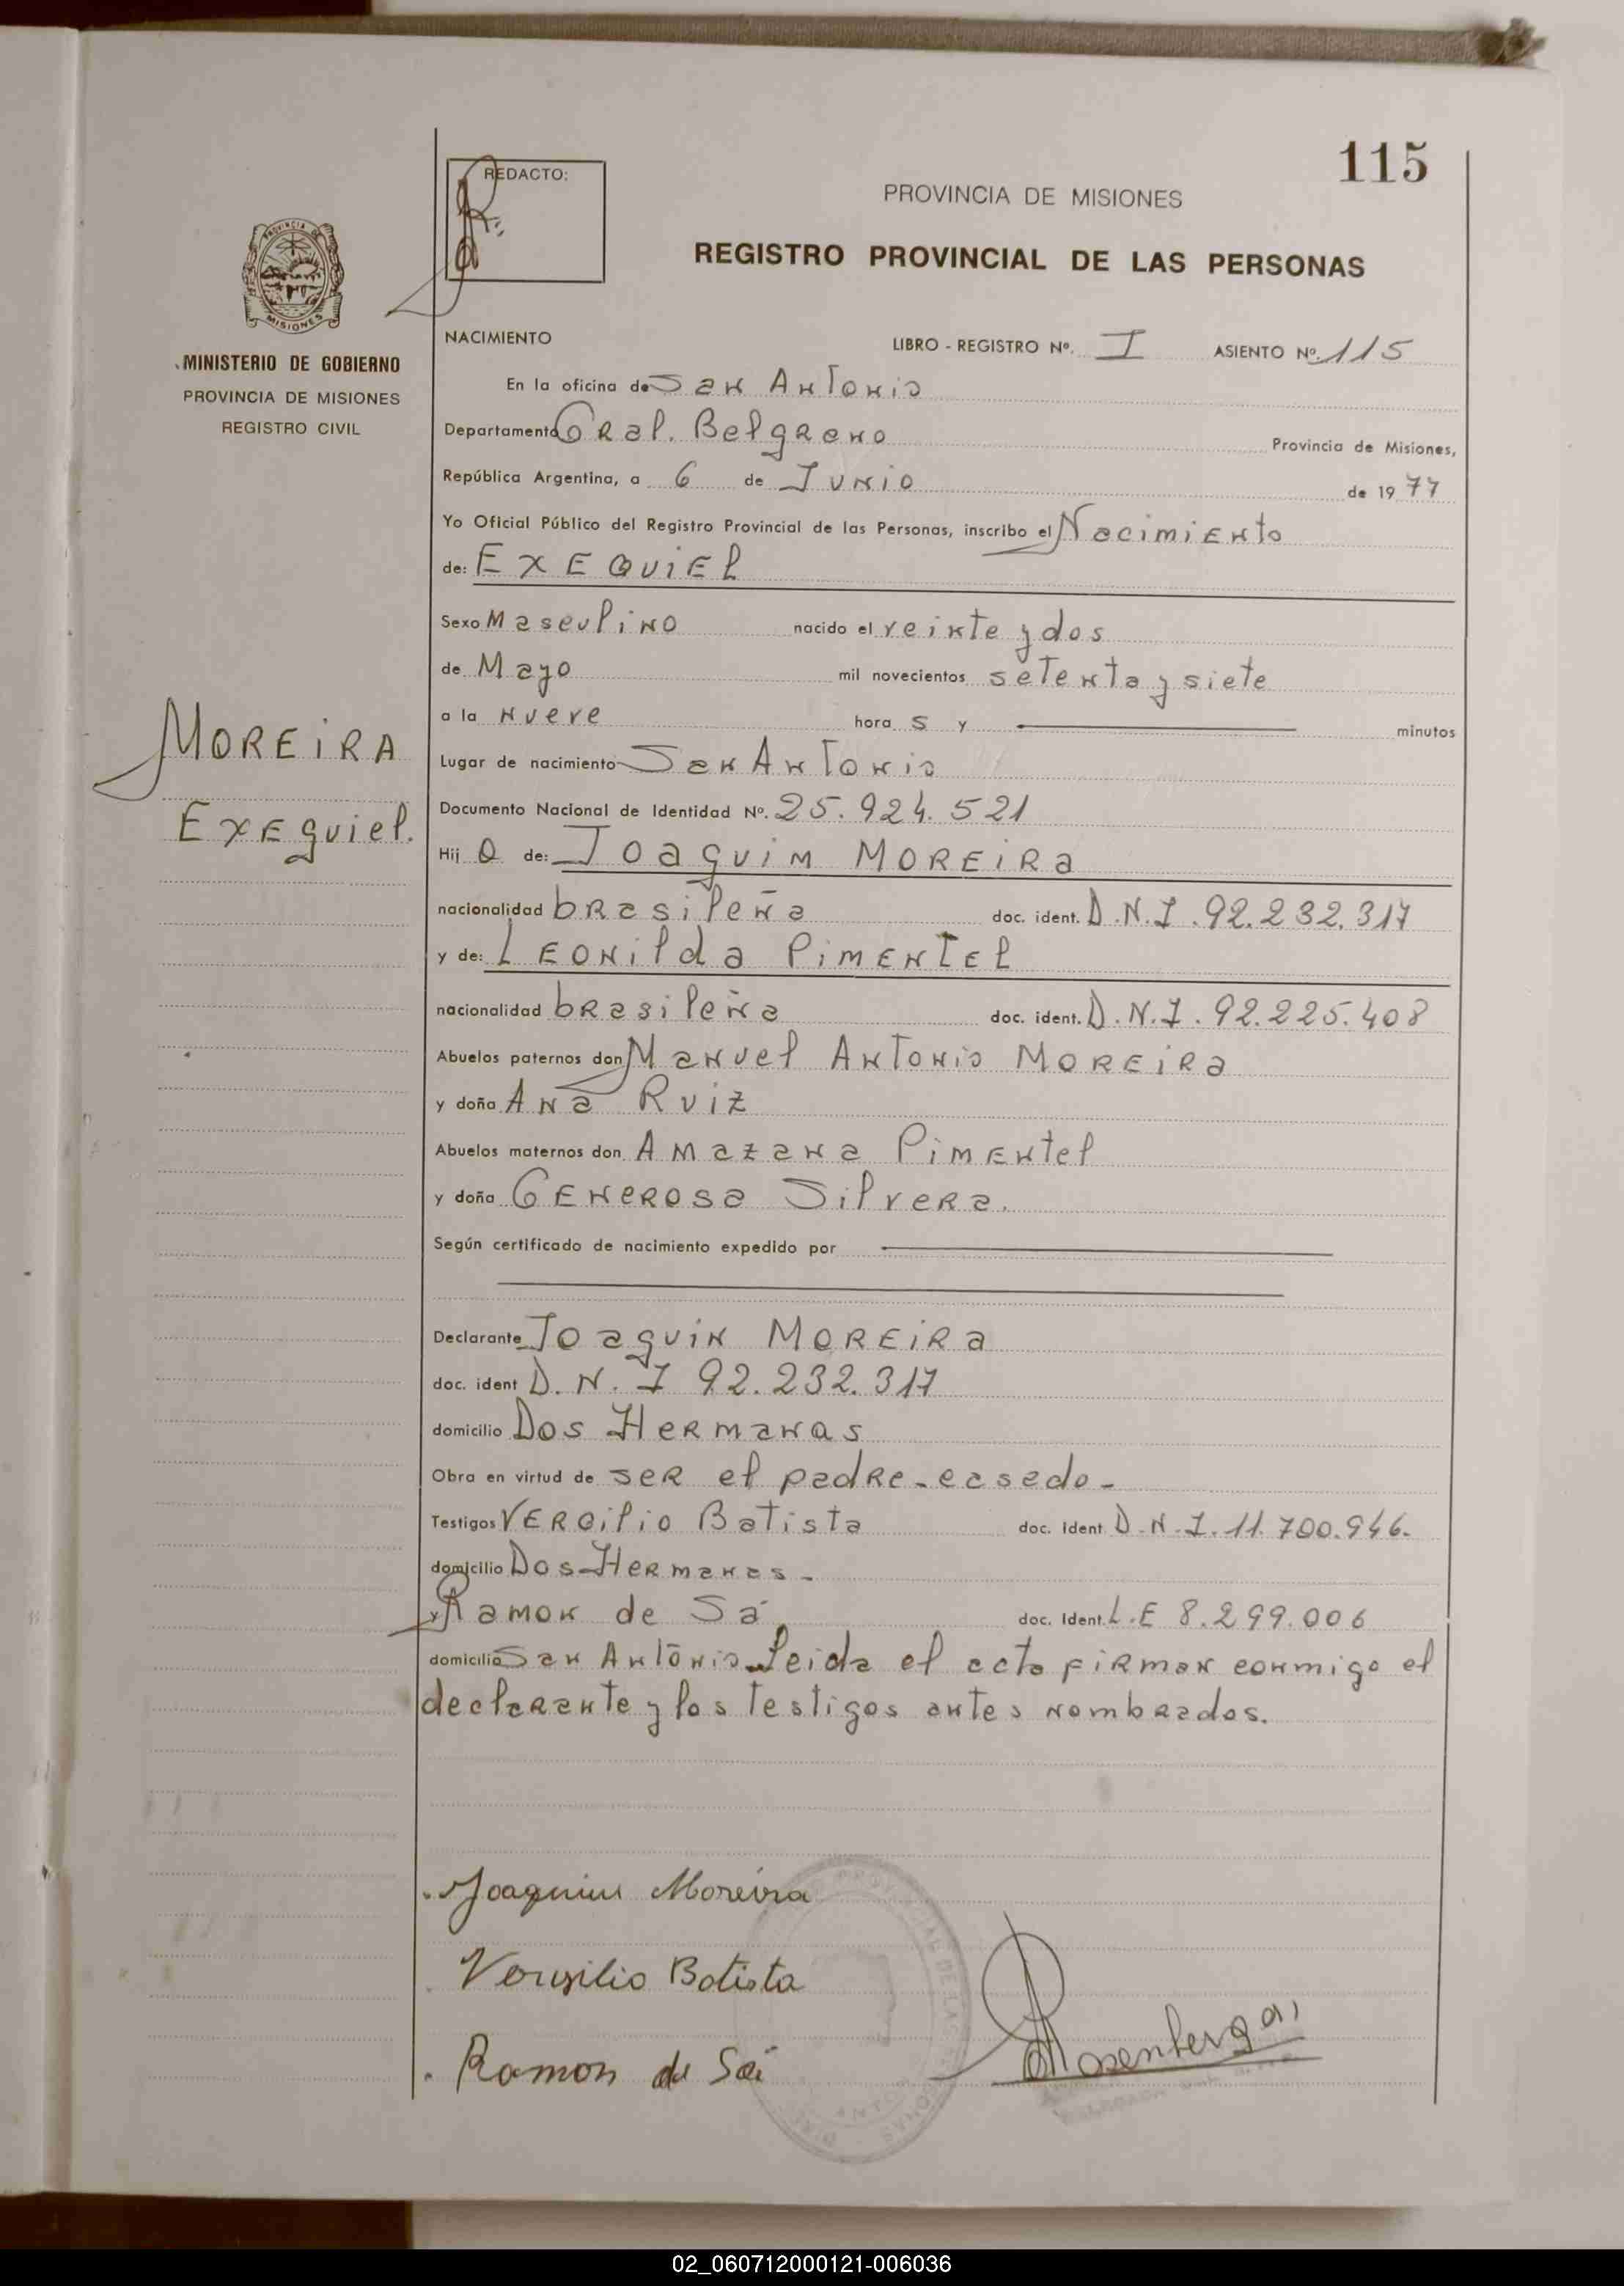 115
REDACTO:
PROVINCIA DE MISIONES
REGISTRO PROVINCIAL DE LAS PERSONAS
PROVINCIA DE
MISIONES
MINISTERIO DE GOBIERNO
PROVINCIA DE MISIONES
REGISTRO CIVIL
MOREIRA
Exequiel.
NACIMIENTO LIBRO - REGISTRO Nº. I ASIENTO Nº. 115
En la oficina de San Antonio
Departamento Gral. Belgrano Provincia de Misiones,
República Argentina, a 6 de Junio de 1977
Yo Oficial Público del Registro Provincial de las Personas, inscribo el Nacimiento
de: EXEQUIEL
Sexo Masculino nacido el veinte y dos
de Mayo mil novecientos setenta y siete
a la nueve hora s y minutos
Lugar de nacimiento San Antonio
Documento Nacional de Identidad Nº. 25.924.521
Hij o de: Joaquim MOREIRA
nacionalidad brasileña doc. ident. D.N.I. 92.232.317
y de: LEONilda PIMENTEL
nacionalidad brasileña doc. ident. D.N.I. 92.225.408
Abuelos paternos don Manuel Antonio MOREIRA
y doña Ana Ruiz
Abuelos maternos don Amazana Pimentel
y doña Generosa Silvera.
Según certificado de nacimiento expedido por
Declarante Joaquin MOREIRA
doc. ident D.N.I 92.232.317
domicilio Dos Hermanas
Obra en virtud de ser el padre - casado -
Testigos VERGilio Batista doc. Ident. D.N.I. 11.700.946.
domicilio Dos Hermanas -
y Ramon de Sá doc. Ident. L.E 8.299.006
domicilio San Antonio. Leida el acta firman conmigo el
declarante y los testigos antes nombrados.
Joaquim Moreira
Vergilio Batista
Ramon de Sá
02_060712000121-006036